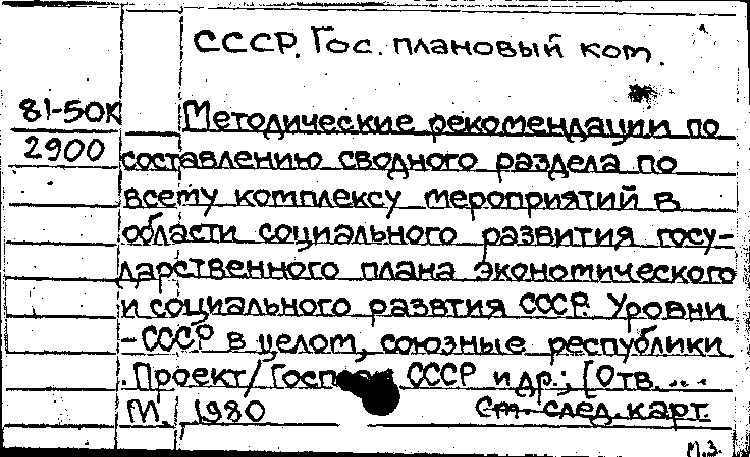 СССР. Гос. плановый ком.
81-50К
2900
Методические рекомендации по
составлению сводного раздела по
всему комплексу мероприятий в
области социального развития госу-
дарственного плана экономического
и социального развтия СССР. Уровни
- СССР в целом, союзные республики
. Проект/ Госплан СССР и др.; [Отв. ...
М., 1980 См. след. карт.
М.З.